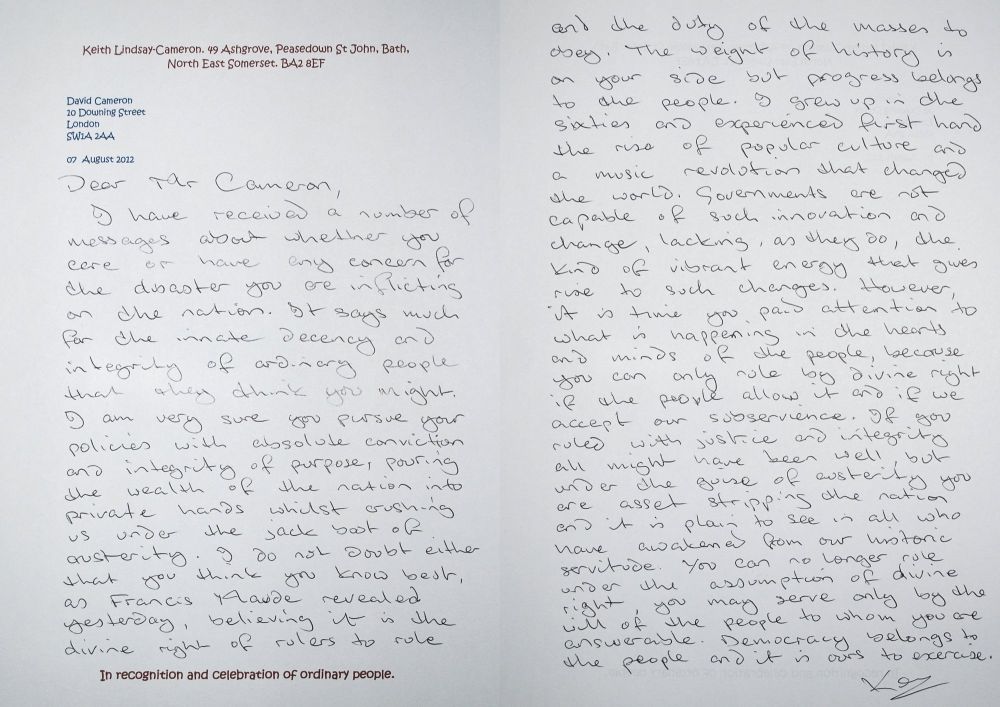 Keith Lindsay-Cameron. 49 Ashgrove, Peasedown St John, Bath,
North East Somerset. BA2 8EF
David Cameron
10 Downing Street
London
SW1A 2AA
07 August 2012
Dear Mr Cameron,
I have received a number of
messages about whether you
care or have any concern for
the disaster you are inflicting
on the nation. It says much
for the innate decency and
integrity of ordinary people
that they think you might.
I am very sure you pursue your
policies with absolute conviction
and integrity of purpose, pouring
the wealth of the nation into
private hands whilst crushing
us under the jack boot of
austerity. I do not doubt either
that you think you know best,
as Francis Maude revealed
yesterday, believing it is the
divine right of rulers to rule
In recognition and celebration of ordinary people.
and the duty of the masses to
obey. The weight of history is
on your side but progress belongs
to the people. I grew up in the
sixties and experienced first hand
the rise of popular culture and
a music revolution that changed
the world. Governments are not
capable of such innovation and
change, lacking, as they do, the
kind of vibrant energy that gives
rise to such changes. However,
it is time you paid attention to
what is happening in the hearts
and minds of the people, because
you can only rule by divine right
if the people allow it and if we
accept our subservience. If you
ruled with justice and integrity
all might have been well, but
under the guise of austerity you
are asset stripping the nation
and it is plain to see in all who
have awakened from our historic
servitude. You can no longer rule
under the assumption of divine
right, you may serve only by the
will of the people to whom you are
answerable. Democracy belongs to
the people and it is ours to exercise.